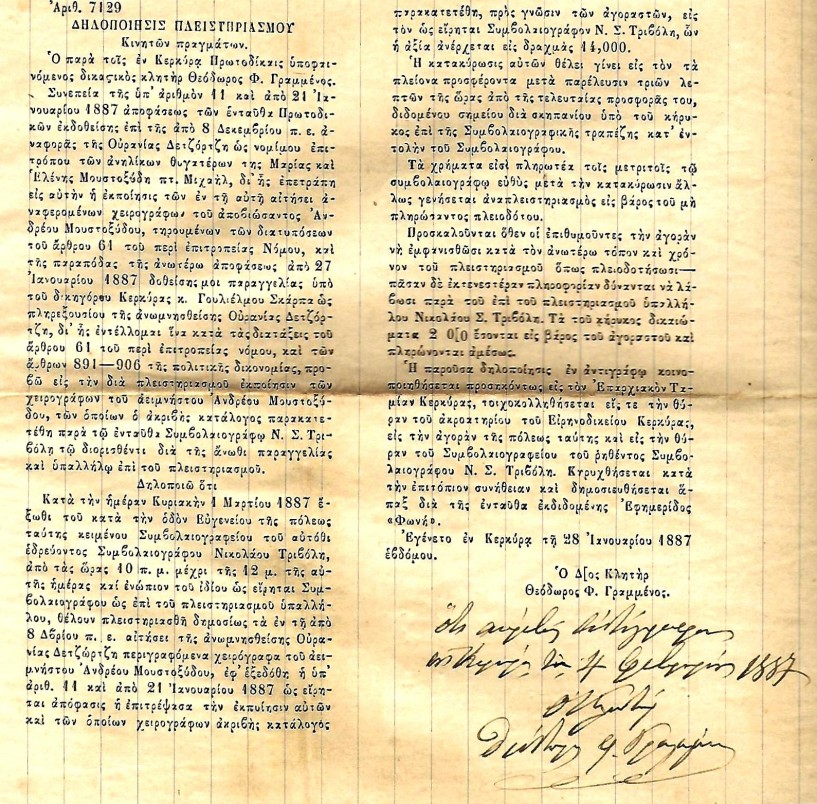 Ἀριθ. 7129
ΔΗΛΟΠΟΙΗΣΙΣ ΠΛΕΙΣΤΗΡΙΑΣΜΟΥ
Κινητῶν πραγμάτων.
Ὁ παρὰ τοῖς ἐν Κερκύρᾳ Πρωτοδίκαις ὑποφαι-
νόμενος δικαστικὸς κλητὴρ Θεόδωρος Φ. Γραμμένος.
Συνεπείᾳ τῆς ὑπ' ἀριθμὸν 11 καὶ ἀπὸ 21 Ἰα-
νουαρίου 1887 ἀποφάσεως τῶν ἐνταῦθα Πρωτοδι-
κῶν ἐκδοθείσης ἐπὶ τῆς ἀπὸ 8 Δεκεμβρίου π. ε. ἀ-
ναφορᾶς τῆς Οὐρανίας Δετζόρτζη ὡς νομίμου ἐπι-
τρόπου τῶν ἀνηλίκων θυγατέρων της Μαρίας καὶ
Ἑλένης Μουστοξύδη πτ. Μιχαήλ, δι' ἧς ἐπετράπη
εἰς αὐτὴν ἡ ἐκποίησις τῶν ἐν τῇ αὐτῇ αἰτήσει ἀ-
ναφερομένων χειρογράφων τοῦ ἀποβιώσαντος Ἀν-
δρέου Μουστοξύδου, τηρουμένων τῶν διατυπώσεων
τοῦ ἄρθρου 61 τοῦ περὶ ἐπιτροπείας Νόμου, καὶ
τῆς παραπόδας τῆς ἀνωτέρω ἀποφάσεως ἀπὸ 27
Ἰανουαρίου 1887 δοθείσης μοι παραγγελίας ὑπὸ
τοῦ δικηγόρου Κερκύρας κ. Γουλιέλμου Σκάρπα ὡς
πληρεξουσίου τῆς ἀνωμνησθείσης Οὐρανίας Δετζόρ-
τζη, δι' ἧς ἐντέλλομαι ἵνα κατὰ τὰς διατάξεις τοῦ
ἄρθρου 61 τοῦ περὶ ἐπιτροπείας νόμου, καὶ τῶν
ἄρθρων 891—906 τῆς πολιτικῆς δικονομίας, προ-
βῶ εἰς τὴν διὰ πλειστηριασμοῦ ἐκποίησιν τῶν
χειρογράφων τοῦ ἀειμνήστου Ἀνδρέου Μουστοξύ-
δου, τῶν ὁποίων ὁ ἀκριβὴς κατάλογος παρακατε-
τέθη παρὰ τῷ ἐνταῦθα Συμβολαιογράφῳ Ν. Σ. Τρι-
βόλη τῷ διορισθέντι διὰ τῆς ἄνωθι παραγγελίας
καὶ ὑπαλλήλῳ ἐπὶ τοῦ πλειστηριασμοῦ.
Δηλοποιῶ ὅτι
Κατὰ τὴν ἡμέραν Κυριακὴν 1 Μαρτίου 1887 ἔ-
ξωθι τοῦ κατὰ τὴν ὁδὸν Εὐγενείου τῆς πόλεως
ταύτης κειμένου Συμβολαιογραφείου τοῦ αὐτόθι
ἑδρεύοντος Συμβολαιογράφου Νικολάου Τριβόλη,
ἀπὸ τὰς ὥρας 10 π. μ. μέχρι τῆς 12 μ. τῆς αὐ-
τῆς ἡμέρας καὶ ἐνώπιον τοῦ ἰδίου ὡς εἴρηται Συμ-
βολαιογράφου ὡς ἐπὶ τοῦ πλειστηριασμοῦ ὑπαλλή-
λου, θέλουν πλειστηριασθῆ δημοσίως τὰ ἐν τῇ ἀπὸ
8 Δβρίου π. ε. αἰτήσει τῆς ἀνωμνησθείσης Οὐρα-
νίας Δετζώρτζη περιγραφόμενα χειρόγραφα τοῦ ἀει-
μνήστου Ἀνδρέου Μουστοξύδου, ἐφ' ἐξεδόθη ἡ ὑπ'
ἀριθ. 11 καὶ ἀπὸ 21 Ἰανουαρίου 1887 ὡς εἴρη-
ται ἀπόφασις ἡ ἐπιτρέψασα τὴν ἐκποίησιν αὐτῶν
καὶ τῶν ὁποίων χειρογράφων ἀκριβὴς κατάλογος
παρακατετέθη, πρὸς γνῶσιν τῶν ἀγοραστῶν, εἰς
τὸν ὡς εἴρηται Συμβολαιογράφον Ν. Σ. Τριβόλη, ὧν
ἡ ἀξία ἀνέρχεται εἰς δραχμὰς 14,000.
Ἡ κατακύρωσις αὐτῶν θέλει γίνει εἰς τὸν τὰ
πλείονα προσφέροντα μετὰ παρέλευσιν τριῶν λε-
πτῶν τῆς ὥρας ἀπὸ τῆς τελευταίας προσφορᾶς του,
διδομένου σημείου διὰ σκηπανίου ὑπὸ τοῦ κήρυ-
κος ἐπὶ τῆς Συμβολαιογραφικῆς τραπέζης κατ' ἐν-
τολὴν τοῦ Συμβολαιογράφου.
Τὰ χρήματα εἰσὶ πληρωτέα τοῖς μετρητοῖς τῷ
συμβολαιογράφῳ εὐθὺς μετὰ τὴν κατακύρωσιν ἄλ-
λως γενήσεται ἀναπλειστηριασμὸς εἰς βάρος τοῦ μὴ
πληρώσαντος πλειοδότου.
Προσκαλοῦνται ὅθεν οἱ ἐπιθυμοῦντες τὴν ἀγορὰν
νὰ ἐμφανισθῶσι κατὰ τὸν ἀνωτέρω τόπον καὶ χρό-
νον τοῦ πλειστηριασμοῦ ὅπως πλειοδοτήσωσι—
πᾶσαν δὲ ἐκτενεστέραν πληροφορίαν δύνανται νὰ λά-
βωσι παρὰ τοῦ ἐπὶ τοῦ πλειστηριασμοῦ ὑπαλλή-
λου Νικολάου Σ. Τριβόλη. Τὰ τοῦ κήρυκος δικαιώ-
ματα 2 0[0 ἔσονται εἰς βάρος τοῦ ἀγοραστοῦ καὶ
πληρώνονται ἀμέσως.
Ἡ παροῦσα δηλοποίησις ἐν ἀντιγράφῳ κοινο-
ποιηθήσεται προσηκόντως εἰς τὸν Ἐπαρχιακὸν Τα-
μίαν Κερκύρας, τοιχοκολληθήσεται εἴς τε τὴν θύ-
ραν τοῦ ἀκροατηρίου τοῦ Εἰρηνοδικείου Κερκύρας,
εἰς τὴν ἀγορὰν τῆς πόλεως ταύτης καὶ εἰς τὴν θύ-
ραν τοῦ Συμβολαιογραφείου τοῦ ῥηθέντος Συμβο-
λαιογράφου Ν. Σ. Τριβόλη. Κηρυχθήσεται κατὰ
τὴν ἐπιτόπιον συνήθειαν καὶ δημοσιευθήσεται ἅ-
παξ διὰ τῆς ἐνταῦθα ἐκδιδομένης Ἐφημερίδος
«Φωνή».
Ἐγένετο ἐν Κερκύρᾳ τῇ 28 Ἰανουαρίου 1887
ἑβδόμου.
Ὁ Δ[ος Κλητὴρ
Θεόδωρος Φ. Γραμμένος.
ὅτι ἀκριβὲς ἀντίγραφον
ἐν Κερκύρᾳ τῇ 4 Φεβρουαρίου 1887
ὁ Κλητήρ
Θεόδωρος Φ. Γραμμένος